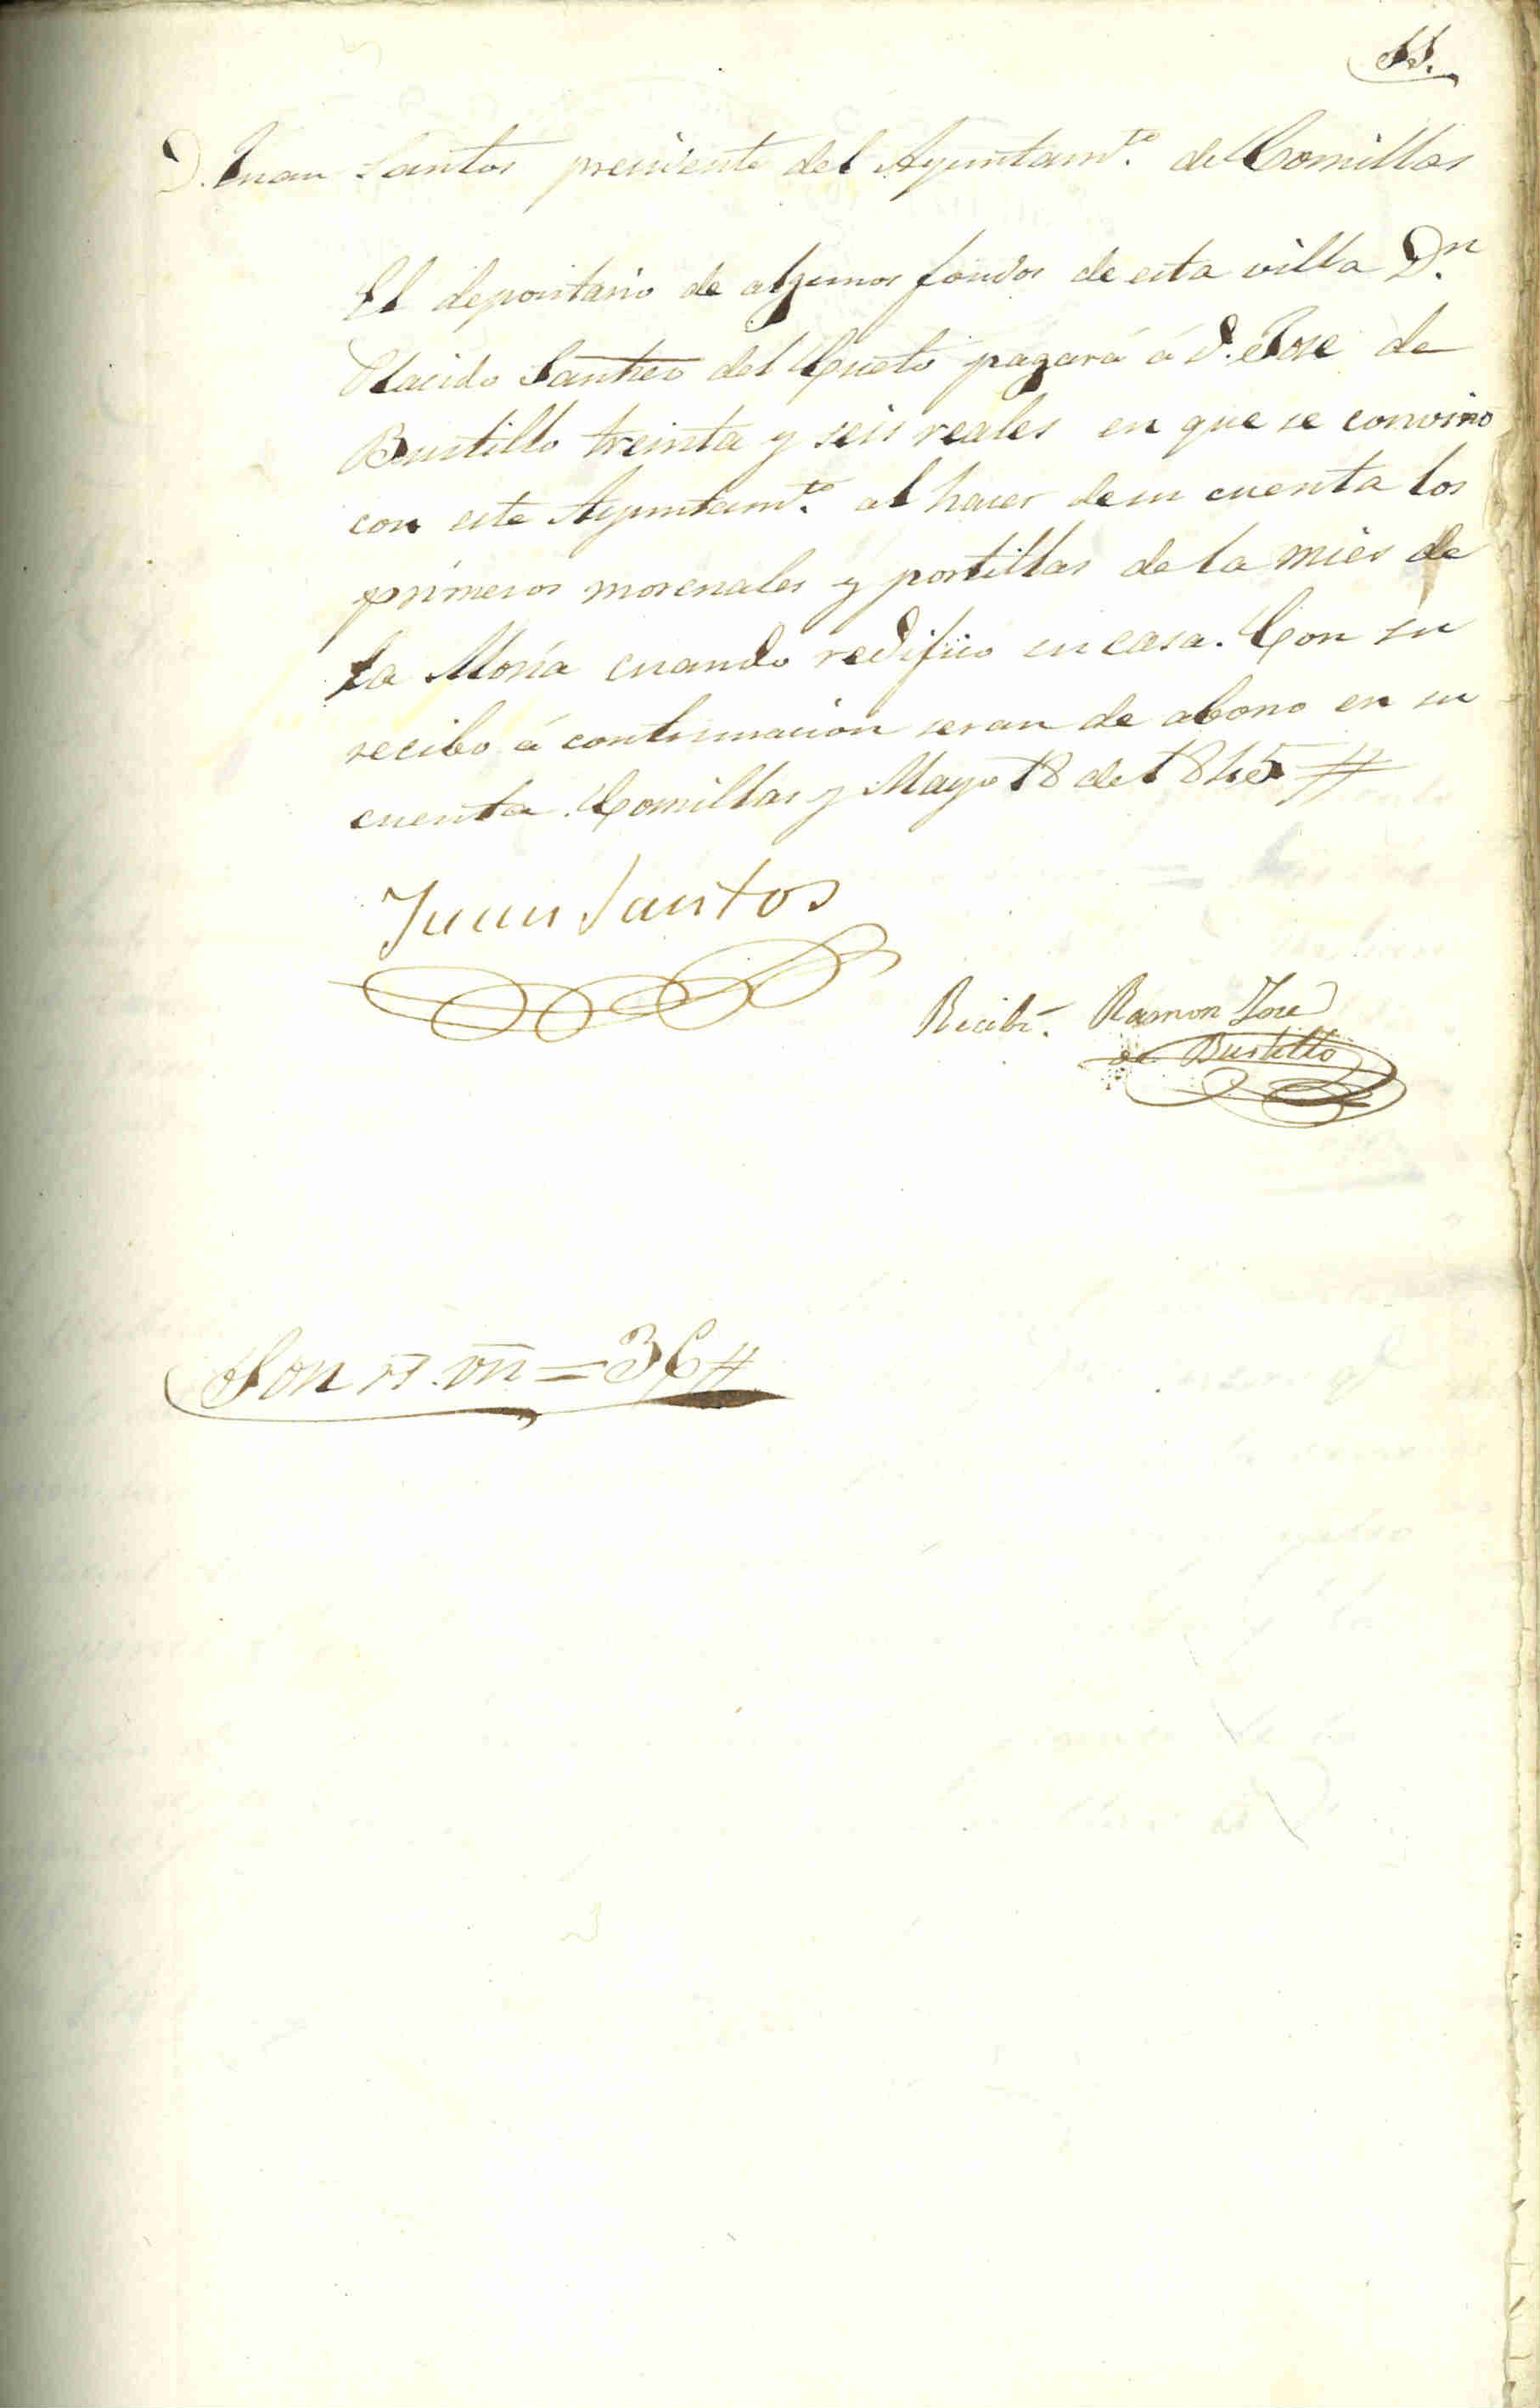 11.
D. Juan Santos presidente del Ayuntam.to de Comillas
El depositario de algunos fondos de esta villa D.n
Placido Sanchez del Cueto pagará á D. Jose de
Bustillo treinta y seis reales en que se convino
con este Ayuntam.to al hacer de su cuenta los
primeros morenales y portillas de la mies de
la Moria cuando redifico su casa. Con su
recibo á continuacion seran de abono en su
cuenta. Comillas y Mayo 18 de 1845 #
Juan Santos
Recibí. Ramon Jose
de Bustillo
Son rs. vn = 36 #